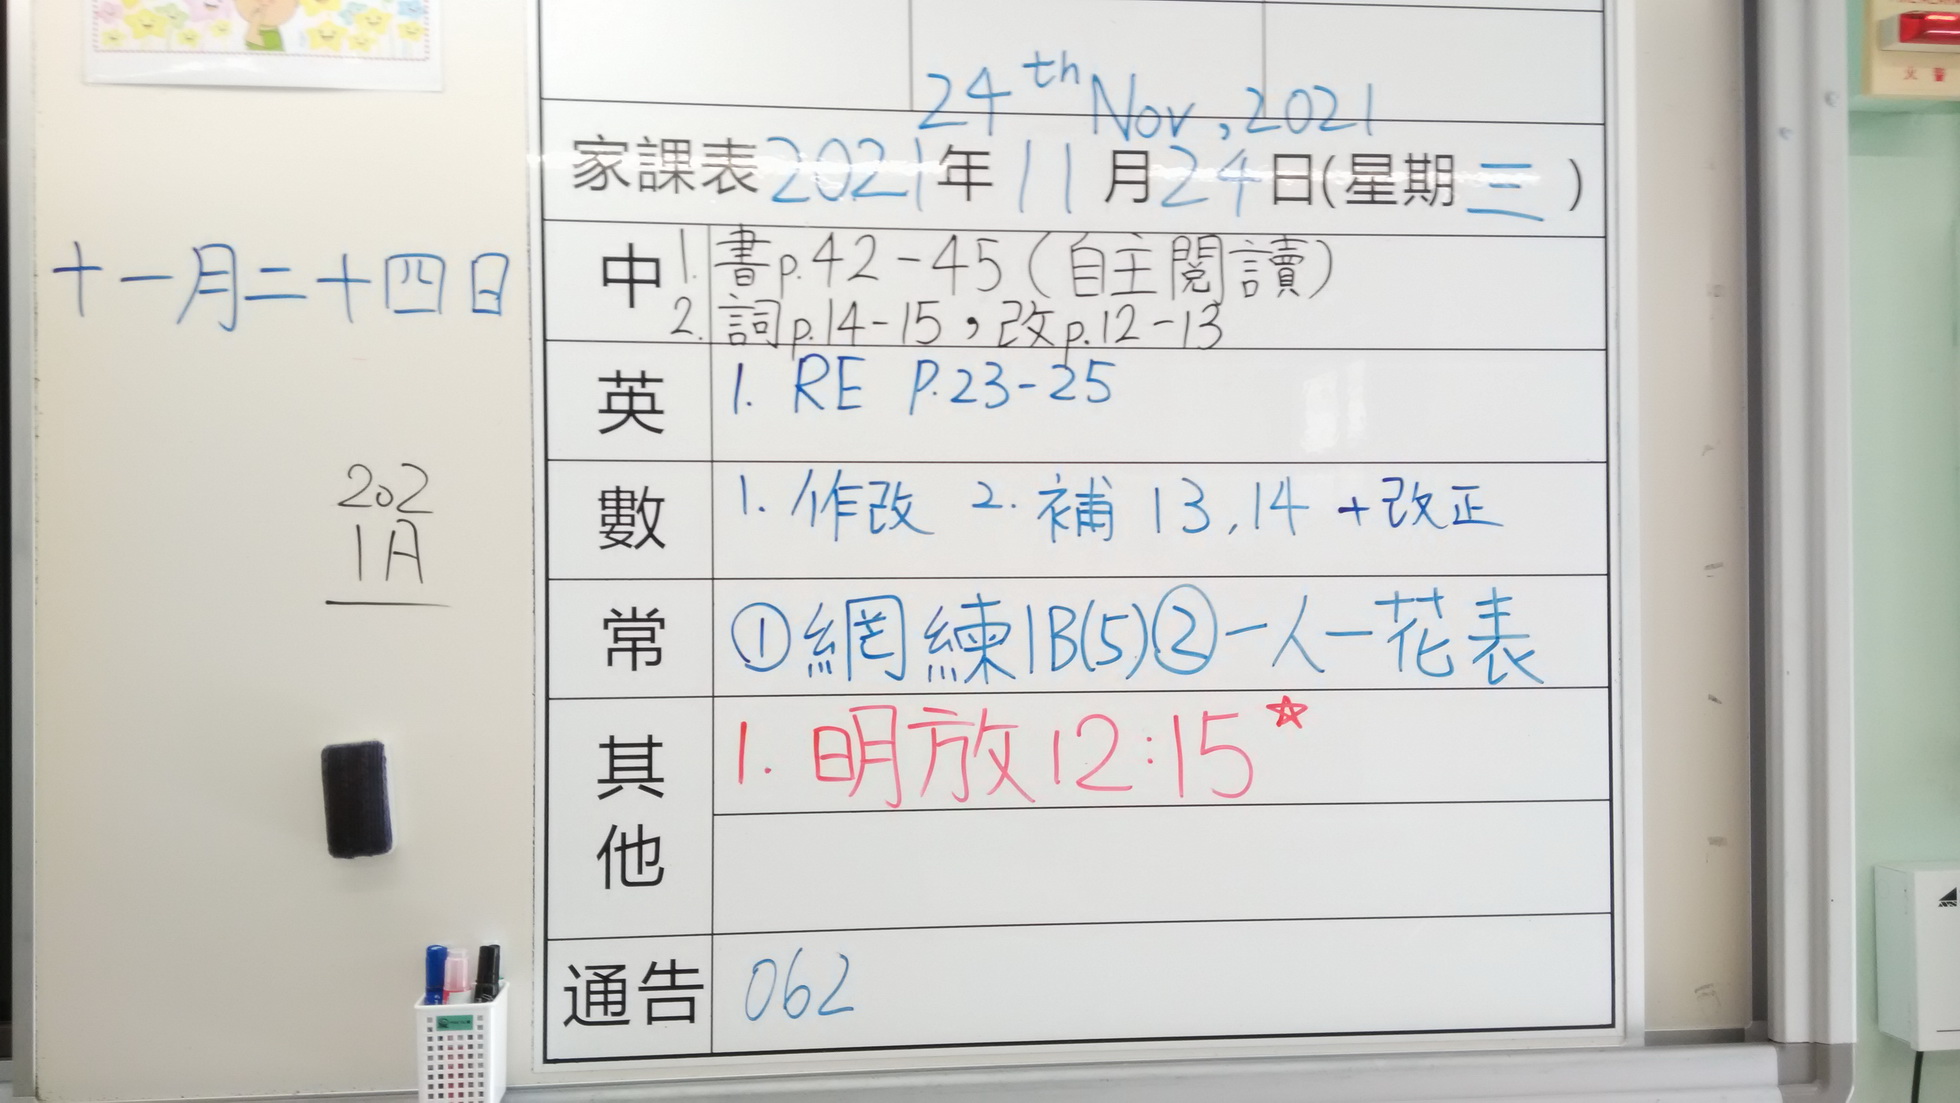 24th Nov, 2021
家課表2021年11月24日(星期三)
十一月二十四日
中 1. 書p.42-45(自主閱讀)
2. 詞p.14-15，改p.12-13
英 1. RE P.23-25
202
1A
數 1. 作改 2. 補 13,14 +改正
常 ①網練1B(5)②一人一花表
其他 1. 明放12:15☆
通告 062
火警